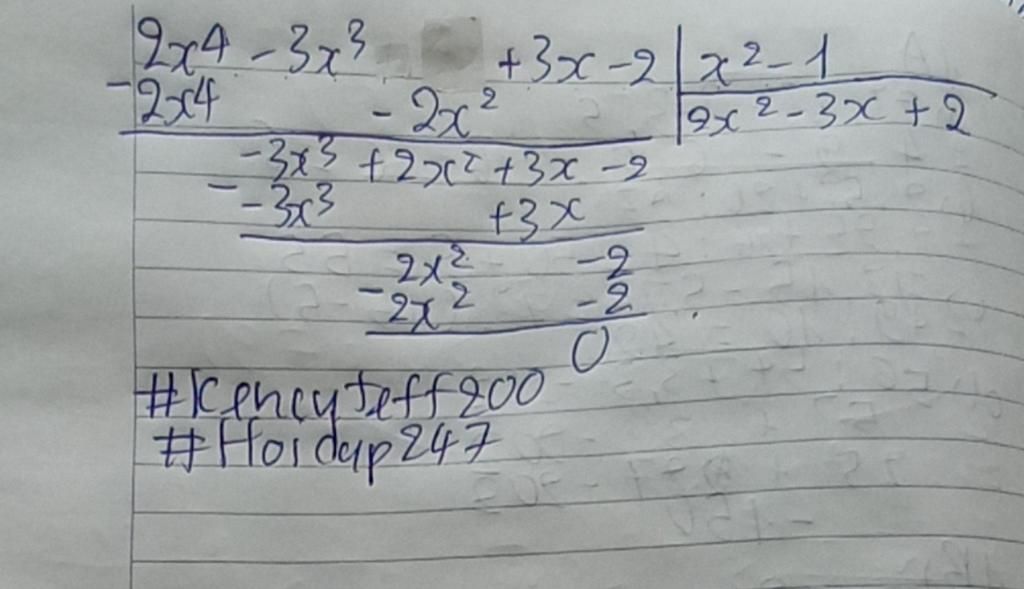 2x⁴ - 3x³ + 3x - 2 | x² - 1
- 2x⁴ - 2x² | 2x² - 3x + 2
-3x³ + 2x² + 3x - 2
- -3x³ + 3x
2x² - 2
- 2x² - 2
0
#KencyJeff200
#Hoidap247